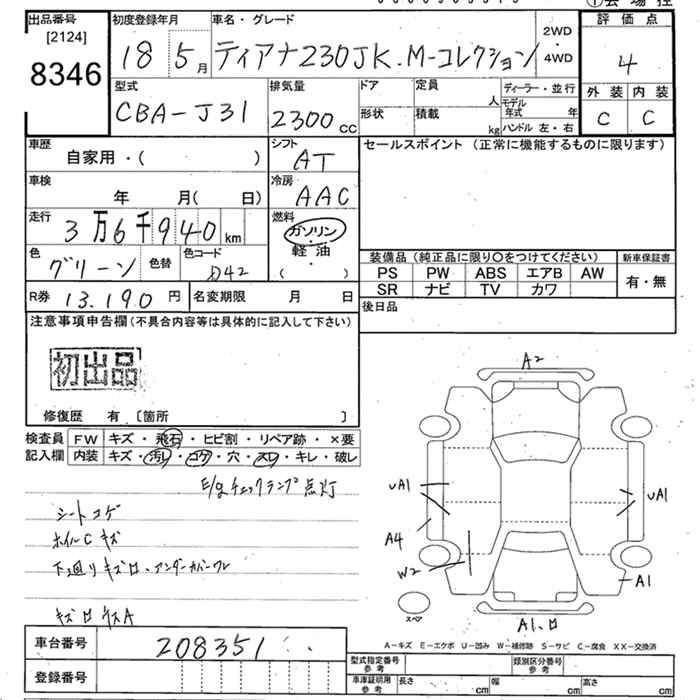 出品番号
[2124]
8346
初度登録年月
18 5月
車名・グレード
ティアナ230JK.M-コレクション
2WD
・
4WD
評価点
4
外装 内装
C C
型式
CBA-J31
排気量
2300cc
ドア
形状
定員
人
積載
kg
ディーラー・並行
モデル年式 年
ハンドル 左・右
車歴
自家用・( )
シフト
AT
セールスポイント (正常に機能するものに限ります)
車検
年 月( 日)
冷房
AAC
走行
3万6千940km
燃料
ガソリン
・
軽油
( )
色
グリーン
色替
色コード
D42
装備品(純正品に限り〇をつけてください)
新車保証書
PS PW ABS エアB AW
SR ナビ TV カワ
有・無
R券 13.190円
名変期限 月 日
後日品
注意事項申告欄(不具合内容等は具体的に記入して下さい)
初出品
修復歴 有 [箇所 ]
検査員記入欄
FW キズ・飛石・ヒビ割・リペア跡・×要
内装 キズ・汚レ・コゲ・穴・スレ・キレ・破レ
E/gチェックランプ点灯
シートコゲ
ホイルCキズ
下廻りキズロ・アンダーカバーワレ
A2
UA1
UA1
A4
W2
A1
スペア
A1.ロ
A-キズ E-エクボ U-凹み W-補修跡 S-サビ C-腐食 XX-交換済
車台番号
208351
登録番号
型式指定番号
参考
類別区分番号
参考
車庫証明用
参考
長さ cm
幅 cm
高さ cm